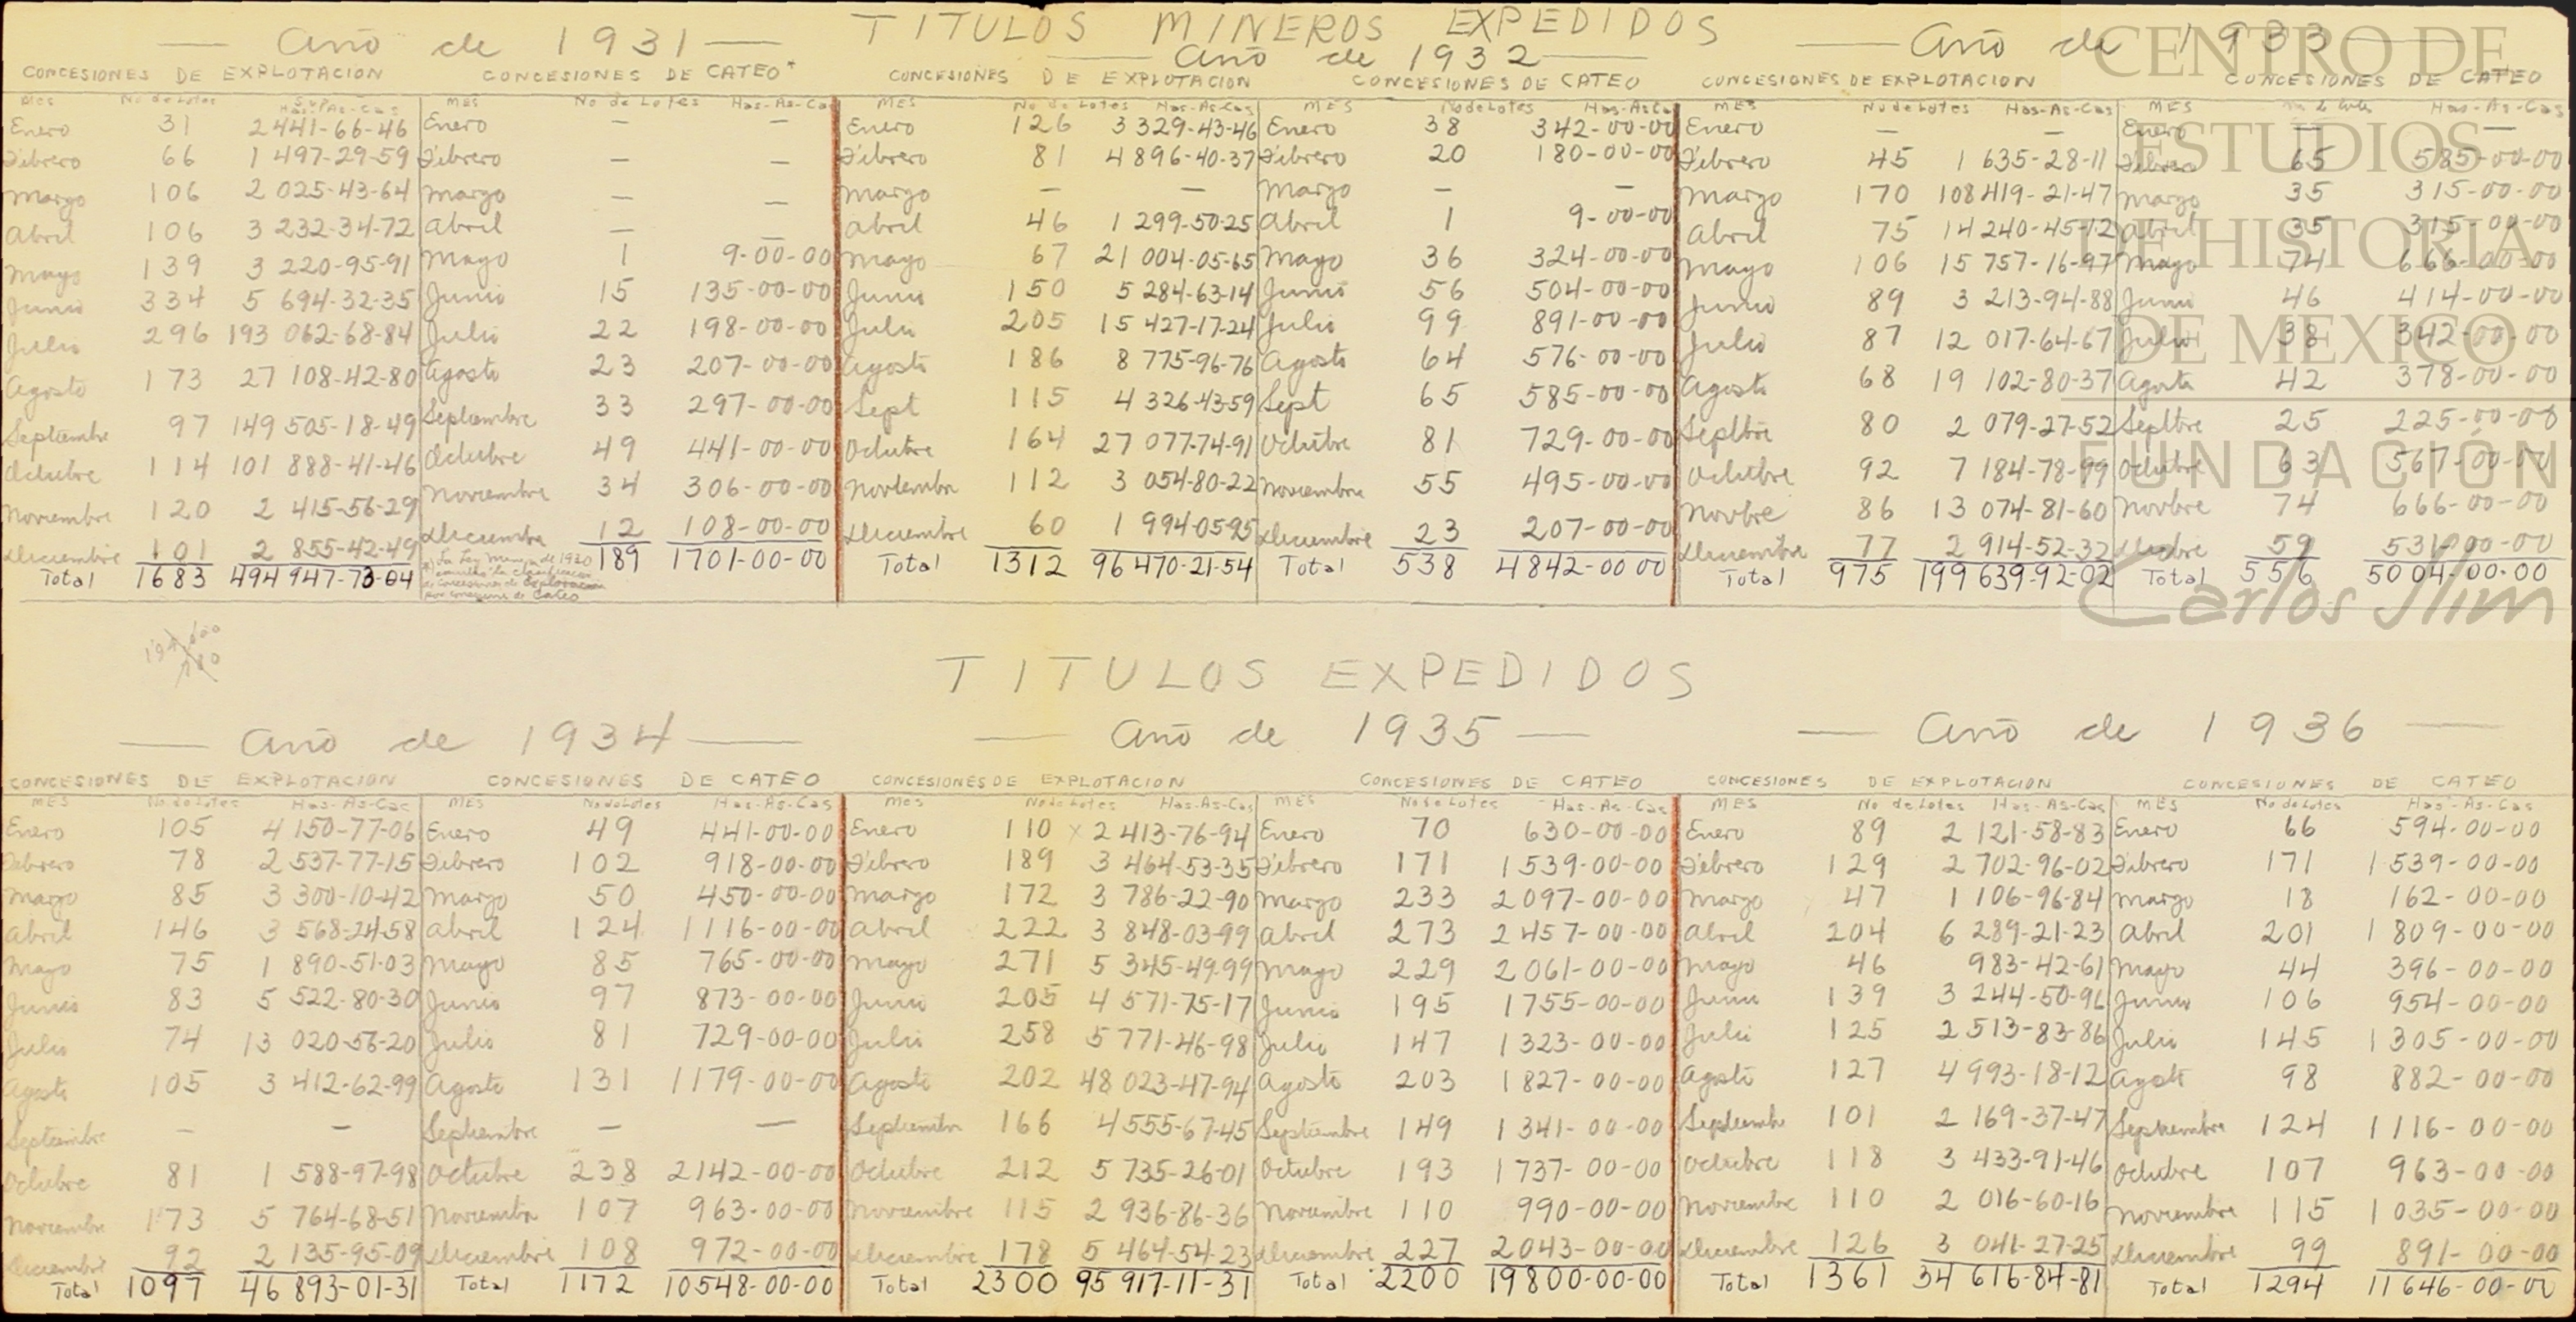 TITULOS MINEROS EXPEDIDOS
— Año de 1931 — — Año de 1932 — — Año de 1933 —
CONCESIONES DE EXPLOTACION CONCESIONES DE CATEO* CONCESIONES DE EXPLOTACION CONCESIONES DE CATEO CONCESIONES DE EXPLOTACION CONCESIONES DE CATEO
MES No de Lotes Has-As-Cas MES No de Lotes Has-As-Cas MES No de Lotes Has-As-Cas MES No de Lotes Has-As-Cas MES No de Lotes Has-As-Cas MES No de Lotes Has-As-Cas
Enero 31 2 441-66-46 Enero — — Enero 126 3 329-43-46 Enero 38 342-00-00 Enero — — Enero — —
Febrero 66 1 497-29-59 Febrero — — Febrero 81 4 896-40-37 Febrero 20 180-00-00 Febrero 45 1 635-28-11 Febrero 65 585-00-00
Marzo 106 2 025-43-64 Marzo — — Marzo — — Marzo — — Marzo 170 108 419-21-47 Marzo 35 315-00-00
Abril 106 3 232-34-72 Abril — — Abril 46 1 299-50-25 Abril 1 9-00-00 Abril 75 14 240-45-12 Abril 35 315-00-00
Mayo 139 3 220-95-91 Mayo 1 9-00-00 Mayo 67 21 004-05-65 Mayo 36 324-00-00 Mayo 106 15 757-16-97 Mayo 74 666-00-00
Junio 334 5 694-32-35 Junio 15 135-00-00 Junio 150 5 284-63-14 Junio 56 504-00-00 Junio 89 3 213-94-88 Junio 46 414-00-00
Julio 296 193 062-68-84 Julio 22 198-00-00 Julio 205 15 427-17-24 Julio 99 891-00-00 Julio 87 12 017-64-67 Julio 38 342-00-00
Agosto 173 27 108-42-80 Agosto 23 207-00-00 Agosto 186 8 775-96-76 Agosto 64 576-00-00 Agosto 68 19 102-80-37 Agosto 42 378-00-00
Septiembre 97 149 505-18-49 Septiembre 33 297-00-00 Sept 115 4 326-43-59 Sept 65 585-00-00 Septbre 80 2 079-27-52 Septbre 25 225-00-00
Octubre 114 101 888-41-46 Octubre 49 441-00-00 Octubre 164 27 077-74-91 Octubre 81 729-00-00 Octubre 92 7 184-78-99 Octubre 63 567-00-00
Noviembre 120 2 415-56-29 Noviembre 34 306-00-00 Noviembre 112 3 054-80-22 Noviembre 55 495-00-00 Novbre 86 13 074-81-60 Novbre 74 666-00-00
Diciembre 101 2 855-42-49 Diciembre 12 108-00-00 Diciembre 60 1 994-05-95 Diciembre 23 207-00-00 Diciembre 77 2 914-52-32 Dicbre 59 531-00-00
Total 1683 494 947-73-04 189 1701-00-00 Total 1312 96 470-21-54 Total 538 4842-00 00 Total 975 199 639-92-02 Total 556 5004-00-00
*) La Ley Minera de 1930
la clasificacion
de concesiones de Explotacion
por concesiones de Cateo
CENTRO DE
ESTUDIOS
DE HISTORIA
DE MEXICO
FUNDACIÓN
Carlos Slim
TITULOS EXPEDIDOS
— Año de 1934 — — Año de 1935 — — Año de 1936 —
CONCESIONES DE EXPLOTACION CONCESIONES DE CATEO CONCESIONES DE EXPLOTACION CONCESIONES DE CATEO CONCESIONES DE EXPLOTACION CONCESIONES DE CATEO
MES No de Lotes Has-As-Cas MES No de Lotes Has-As-Cas MES No de Lotes Has-As-Cas MES No de Lotes Has-As-Cas MES No de Lotes Has-As-Cas MES No de Lotes Has-As-Cas
Enero 105 4 150-77-06 Enero 49 441-00-00 Enero 110 x 2 413-76-94 Enero 70 630-00-00 Enero 89 2 121-58-83 Enero 66 594-00-00
Febrero 78 2 537-77-15 Febrero 102 918-00-00 Febrero 189 3 464-53-35 Febrero 171 1539-00-00 Febrero 129 2 702-96-02 Febrero 171 1539-00-00
Marzo 85 3 300-10-42 Marzo 50 450-00-00 Marzo 172 3 786-22-90 Marzo 233 2097-00-00 Marzo 47 1 106-96-84 Marzo 18 162-00-00
Abril 146 3 568-24-58 Abril 124 1116-00-00 Abril 222 3 848-03-99 Abril 273 2457-00-00 Abril 204 6 289-21-23 Abril 201 1809-00-00
Mayo 75 1 890-51-03 Mayo 85 765-00-00 Mayo 271 5 345-49-99 Mayo 229 2061-00-00 Mayo 46 983-42-61 Mayo 44 396-00-00
Junio 83 5 522-80-30 Junio 97 873-00-00 Junio 205 4 571-75-17 Junio 195 1755-00-00 Junio 139 3 244-50-96 Junio 106 954-00-00
Julio 74 13 020-56-20 Julio 81 729-00-00 Julio 258 5 771-46-98 Julio 147 1323-00-00 Julio 125 2 513-83-86 Julio 145 1305-00-00
Agosto 105 3 412-62-99 Agosto 131 1179-00-00 Agosto 202 48 023-47-94 Agosto 203 1827-00-00 Agosto 127 4 993-18-12 Agosto 98 882-00-00
Septiembre — — Septiembre — — Septiembre 166 4 555-67-45 Septiembre 149 1341-00-00 Septiembre 101 2 169-37-47 Septiembre 124 1116-00-00
Octubre 81 1 588-97-98 Octubre 238 2142-00-00 Octubre 212 5 735-26-01 Octubre 193 1737-00-00 Octubre 118 3 433-91-46 Octubre 107 963-00-00
Noviembre 173 5 764-68-51 Noviembre 107 963-00-00 Noviembre 115 2 936-86-36 Noviembre 110 990-00-00 Noviembre 110 2 016-60-16 Noviembre 115 1035-00-00
Diciembre 92 2 135-95-09 Diciembre 108 972-00-00 Diciembre 178 5 464-54-23 Diciembre 227 2043-00-00 Diciembre 126 3 041-27-25 Diciembre 99 891-00-00
Total 1097 46 893-01-31 Total 1172 10548-00-00 Total 2300 95 917-11-31 Total 2200 19800-00-00 Total 1361 34 616-84-81 Total 1294 11646-00-00